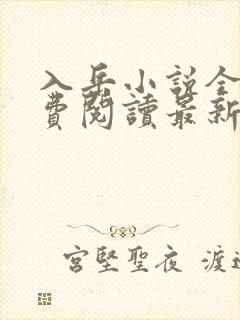 入岳小說全
費閱讀最新
宮堅聖夜 渡邊